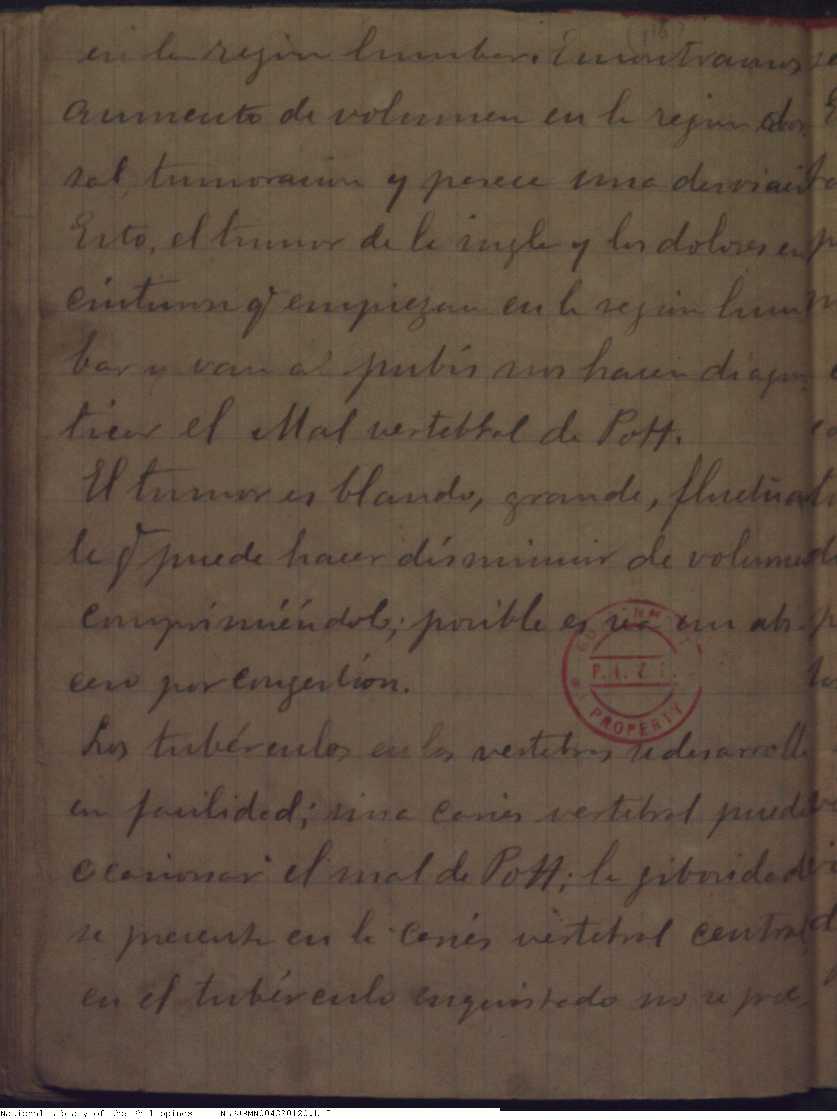 en la región lumbar. Encontramos
aumento de volumen en la región dor
sal, tumoración y parece una desviació
Esto, el tumor de la ingle y los dolores en
cinturon q̃ empiezan en la región lum
bar y van al pubis nos hacen diagnos
ticar el Mal vertebral de Pott.
El tumor es blando, grande, fluctúa
le q̃ puede hacer disminuir de volumen
comprimiéndolo; posible es sea un abs
ceso por congestión.
Los tubérculos en las vertebras se desarrolla
en facilidad; una caries vertebral puede
ocasionar el mal de Pott; la gibosidad
se presenta en la caries vertebral central,
en el tubérculo enquistado no se
P. I. Z.
PROPERTY
National Library of the Philippines